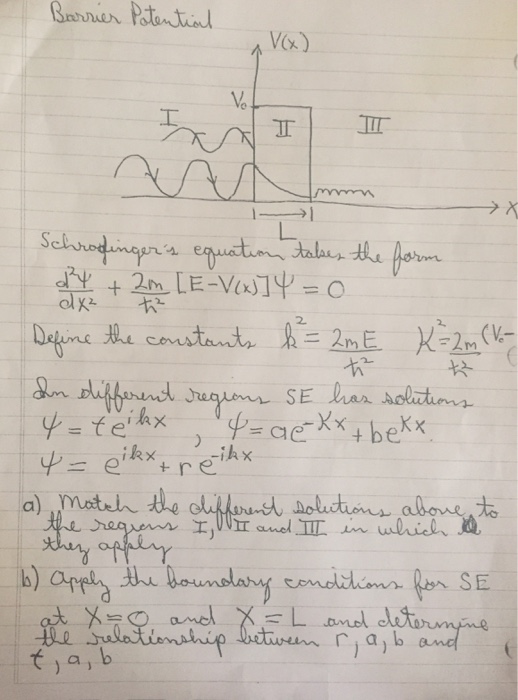 Barrier Potential
V(x)
V₀
I
II
III
x
L
Schrodinger's equation takes the form
d²Ψ/dx² + 2m/ħ² [E-V(x)]Ψ = 0
Define the constants k² = 2mE/ħ² K² = 2m/ħ² (V₀-
In different regions SE has solutions
Ψ = te^{ikx} , Ψ = ae^{-Kx} + be^{Kx}
Ψ = e^{ikx} + re^{-ikx}
a) Match the different solutions above to
the regions I, II and III in which
they apply
b) Apply the boundary conditions for SE
at X=0 and X=L and determine
the relationship between r, a, b and
t, a, b